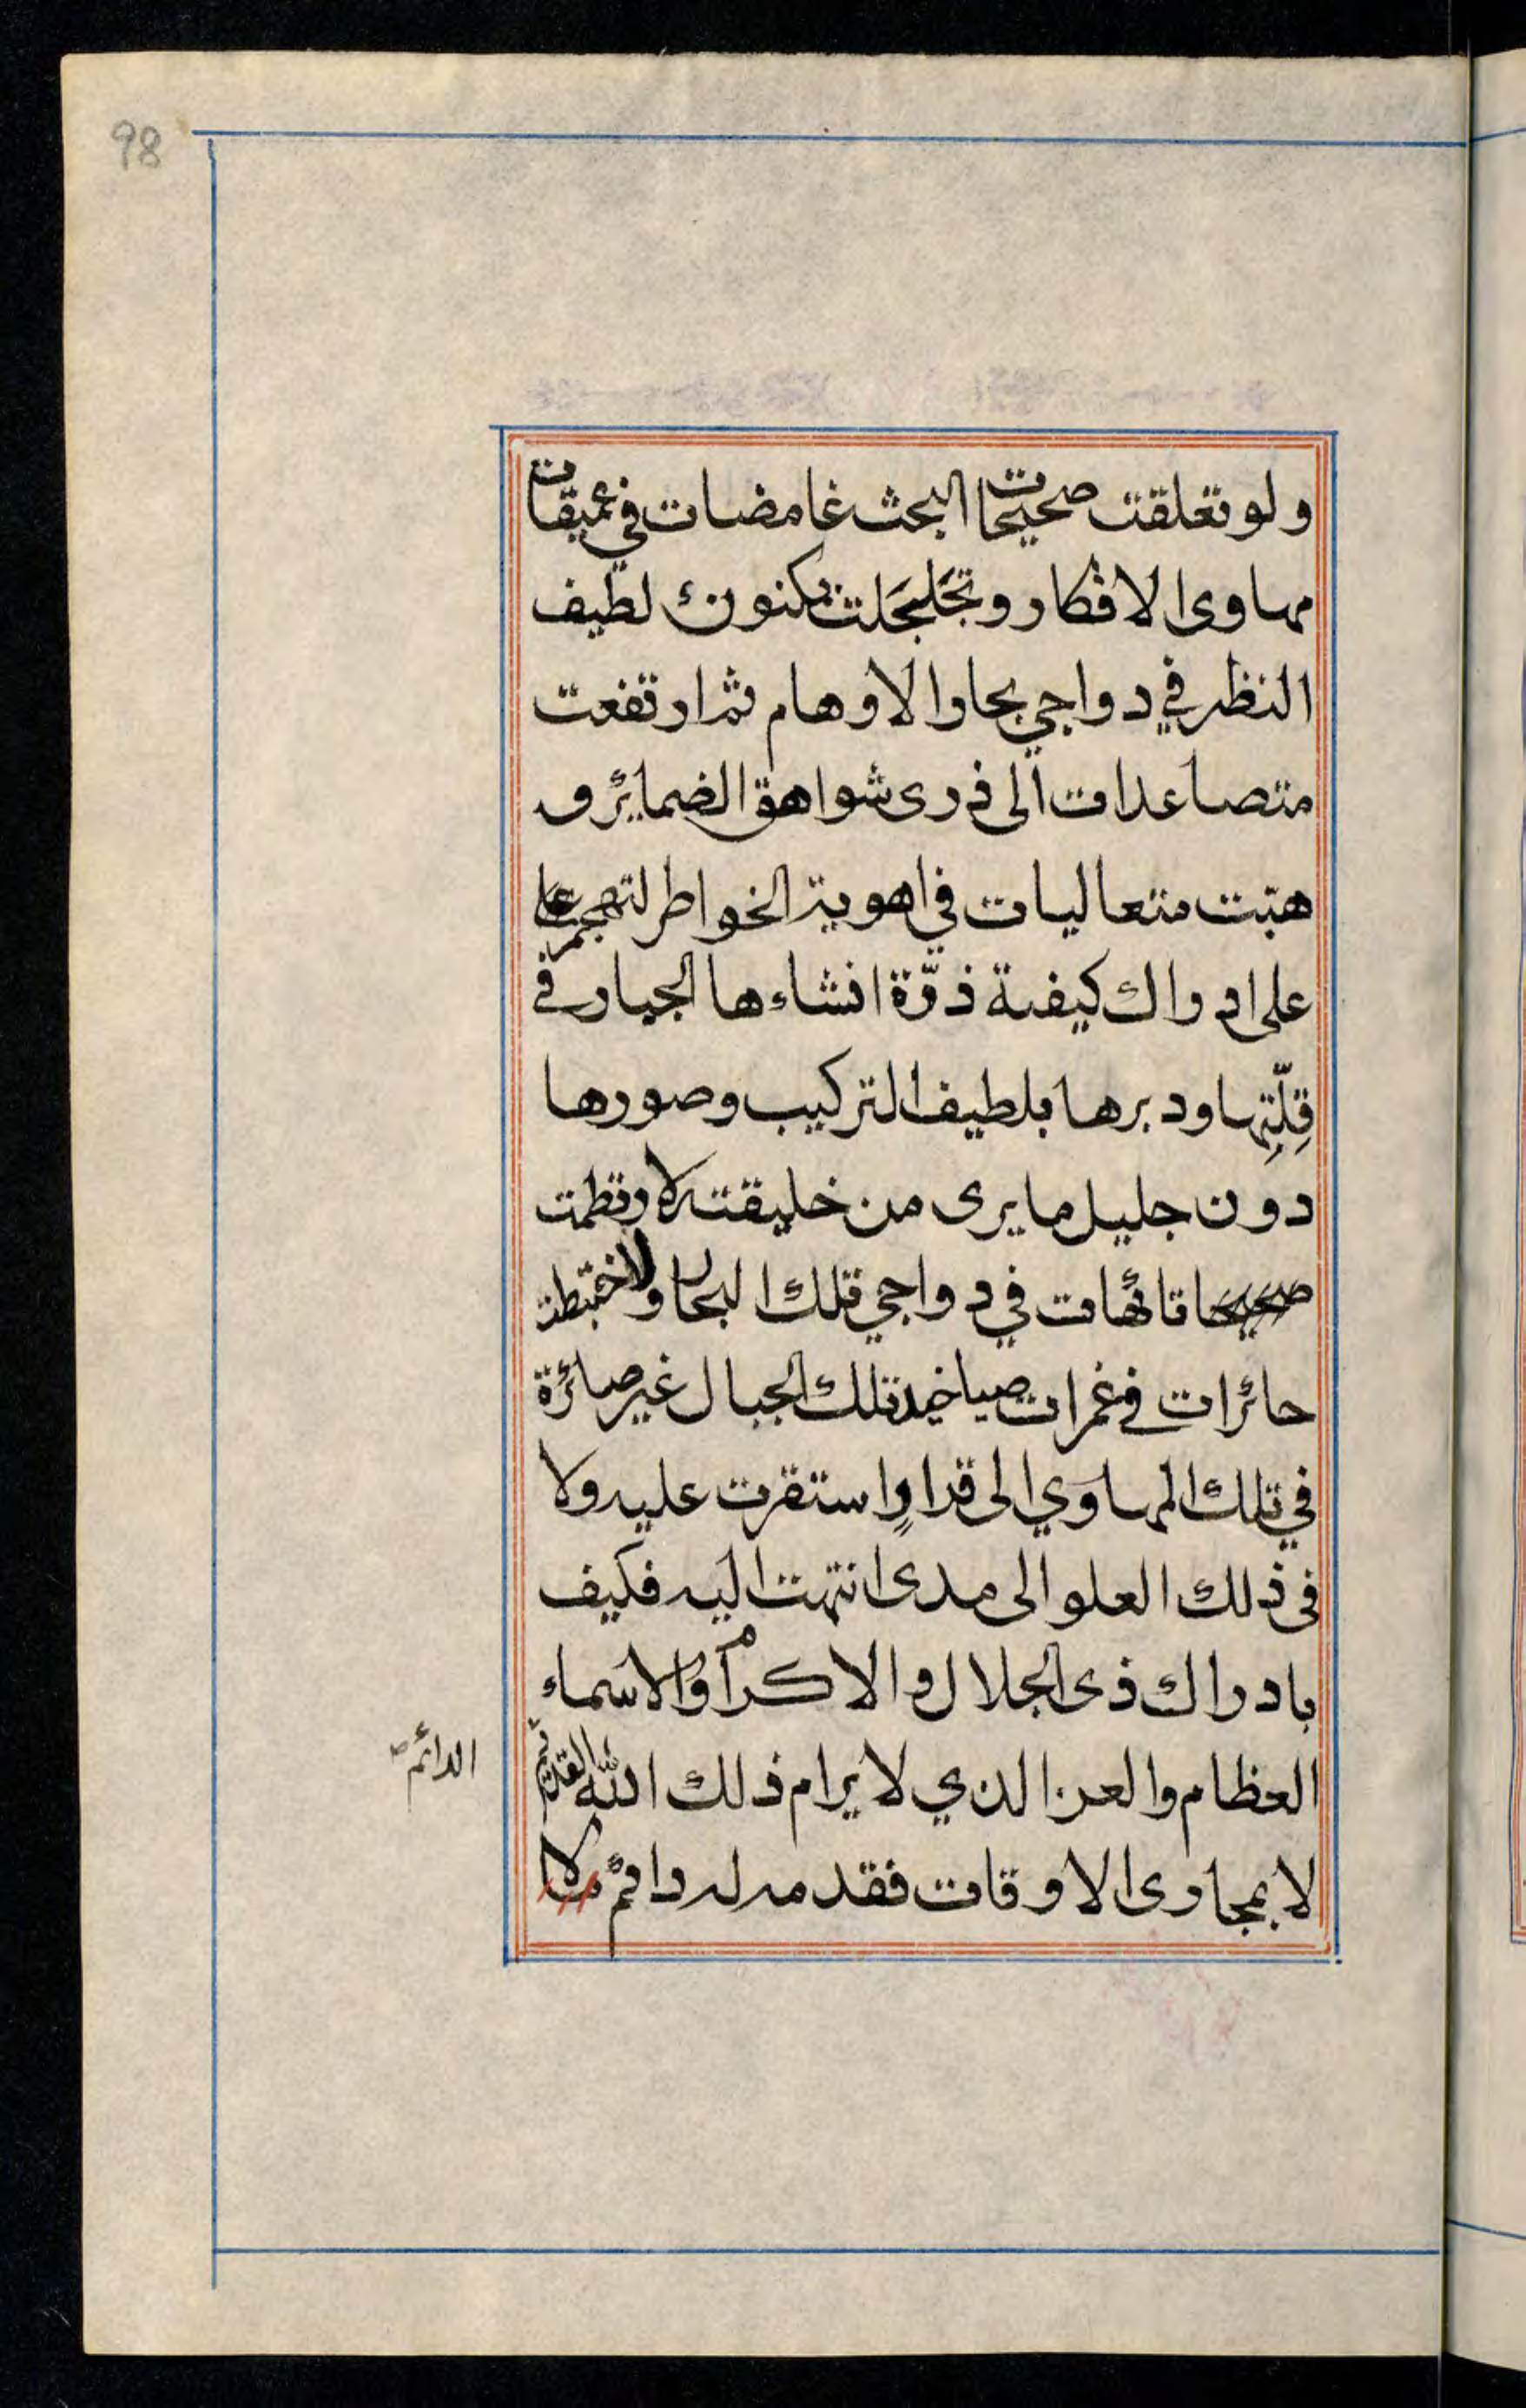 98
ولو تغلقت صحيحات البحث غامضات في عميقات
مهاوى الافكار وتجَلجَلت بكنونك لطيف
النظر في دواجي بحار الاوهام ثم ارتفعت
متصاعدات الى ذرى شواهق الضمائر و
هبّت متعاليات في اهوية الخواطر لتهجم
على ادراك كيفية ذرّة انشاءها الجبار في
قِلّتِها ودبرها بلطيف التركيب وصورها
دون جليل ما يرى من خليقته لارتطمت
تائهات في دواجي تلك البحار ولاختبطت
حائرات في غمرات صياخيد تلك الجبال غير صائرة
في تلك المهاوي الى قرارٍ استقرت عليه ولا
في ذلك العلو الى مدى انتهت اليه فكيف
بادراك ذى الجلال والاكرام والاسماء
العظام والعز الذي لا يرام ذلك الله القديم
الدائم
لا بمجارى الاوقات فقدمه له دائم